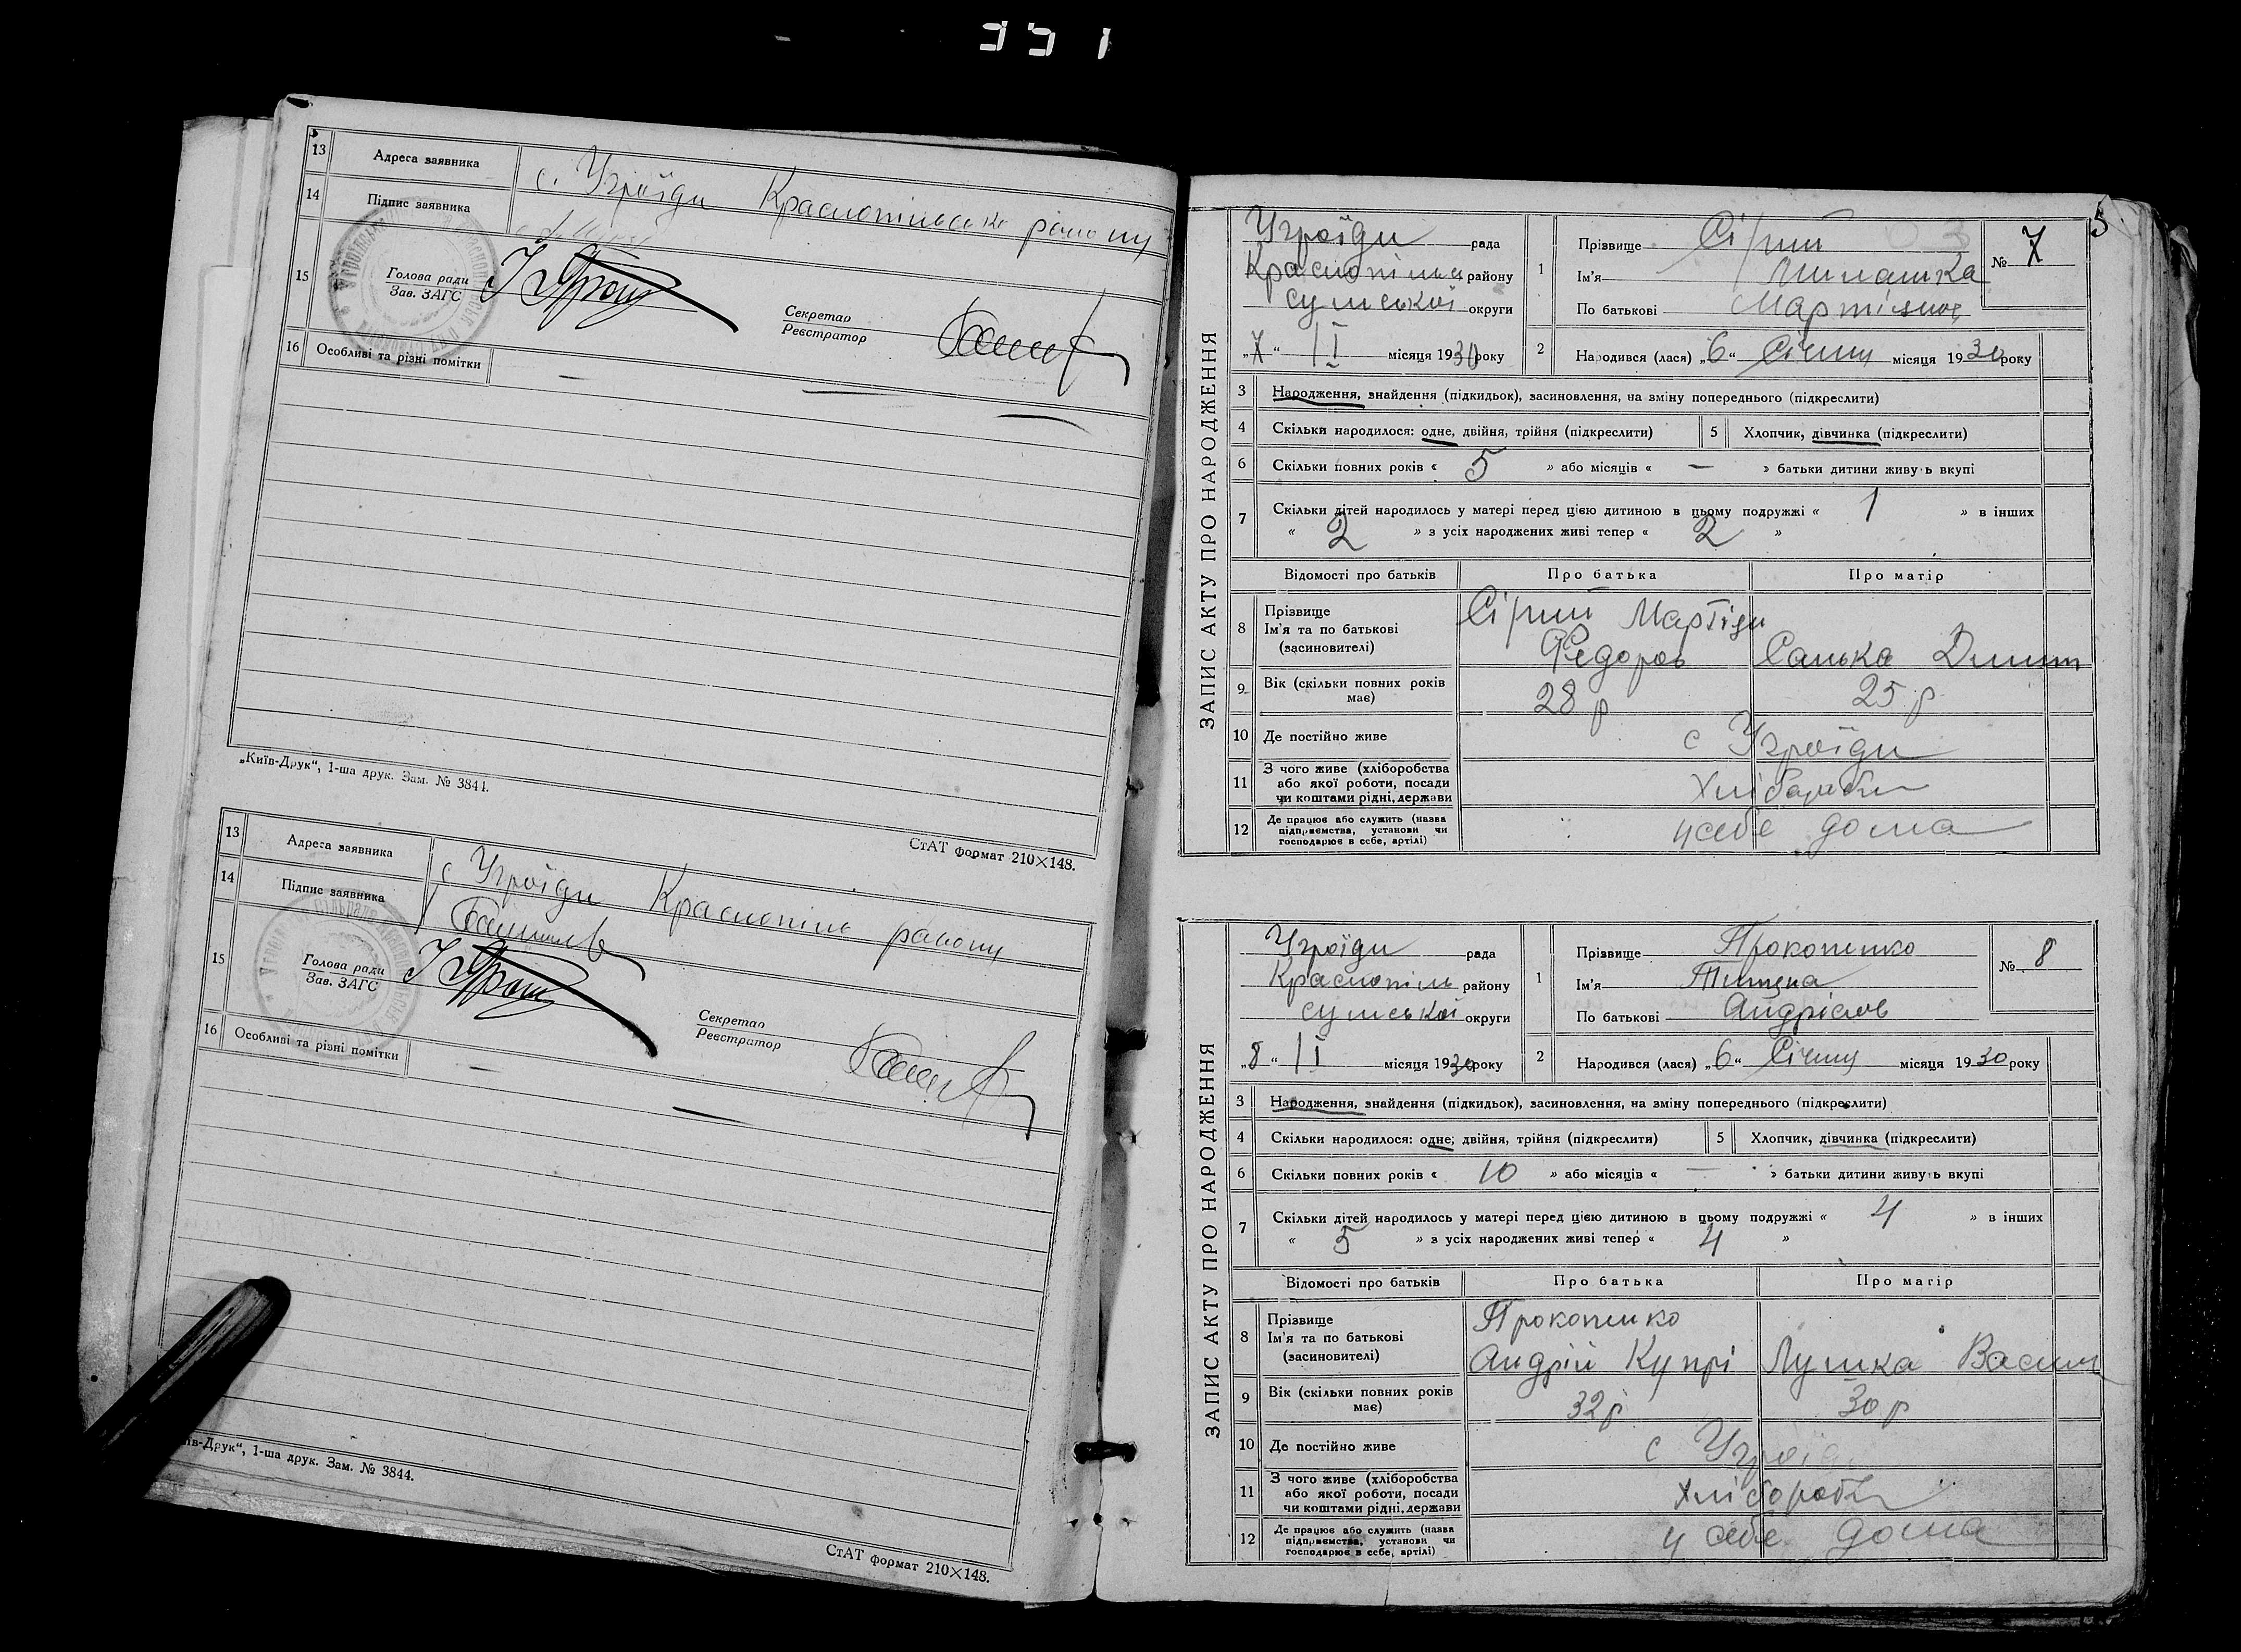 351
13 Адреса заявника с. Угроїди Краснопільсько району
14 Підпис заявника
15 Голова ради
Зав. ЗАГС
Секретар
Реєстратор
16 Особливі та різні помітки — — —
„Київ-Друк“, 1-ша друк. Зам. № 3841.
СтАТ формат 210×148.
13 Адреса заявника с Угроїди Краснопіль району
14 Підпис заявника
15 Голова ради
Зав. ЗАГС
Секретар
Реєстратор
16 Особливі та різні помітки — —
їв-Друк“, 1-ша друк. Зам. № 3844.
СтАТ формат 210×148.
5
ЗАПИС АКТУ ПРО НАРОДЖЕННЯ
Угроїди рада
Краснопільс району
сумської округи
„7“ / I місяця 1930 року
1 Прізвище Сірий
Ім'я Милашка
По батькові Мартінов
№ 7
2 Народився (лася) „6“ Січня місяця 1930 року
3 Народження, знайдення (підкидьок), засиновлення, на зміну попереднього (підкреслити)
4 Скільки народилося: одне, двійня, трійня (підкреслити) 5 Хлопчик, дівчинка (підкреслити)
6 Скільки повних років « 5 » або місяців « — » батьки дитини живуть вкупі
7 Скільки дітей народилось у матері перед цією дитиною в цьому подружжі « 1 » в інших
« 2 » з усіх народжених живі тепер « 2 »
Відомості про батьків Про батька Про матір
8 Прізвище
Ім'я та по батькові
(засиновителі)
Сірий Мартін
Федоров Санька Дмит
9 Вік (скільки повних років має) 28 р 25 р
10 Де постійно живе с Угроїди
11 З чого живе (хліборобства
або якої роботи, посади
чи коштами рідні, держави
Хлібороби
12 Де працює або служить (назва
підприємства, установи чи
господарює в себе, артілі)
у себе дома
ЗАПИС АКТУ ПРО НАРОДЖЕННЯ
Угроїди рада
Краснопіль району
сумської округи
„8“ / I місяця 1930 року
1 Прізвище Прокопенко
Ім'я
По батькові Андрієв
№ 8
2 Народився (лася) „6“ Січня місяця 1930 року
3 Народження, знайдення (підкидьок), засиновлення, на зміну попереднього (підкреслити)
4 Скільки народилося: одне; двійня, трійня (підкреслити) 5 Хлопчик, дівчинка (підкреслити)
6 Скільки повних років « 10 » або місяців « — » батьки дитини живуть вкупі
7 Скільки дітей народилось у матері перед цією дитиною в цьому подружжі « 4 » в інших
« 5 » з усіх народжених живі тепер « 4 »
Відомості про батьків Про батька Про матір
8 Прізвище
Ім'я та по батькові
(засиновителі)
Прокопенко
Андрій Купрі Лушка Васил
9 Вік (скільки повних років має) 32 р 30 р
10 Де постійно живе с Угроїди
11 З чого живе (хліборобства
або якої роботи, посади
чи коштами рідні, держави
Хлібороби
12 Де працює або служить (назва
підприємства, установи чи
господарює в себе, артілі)
у себе дома